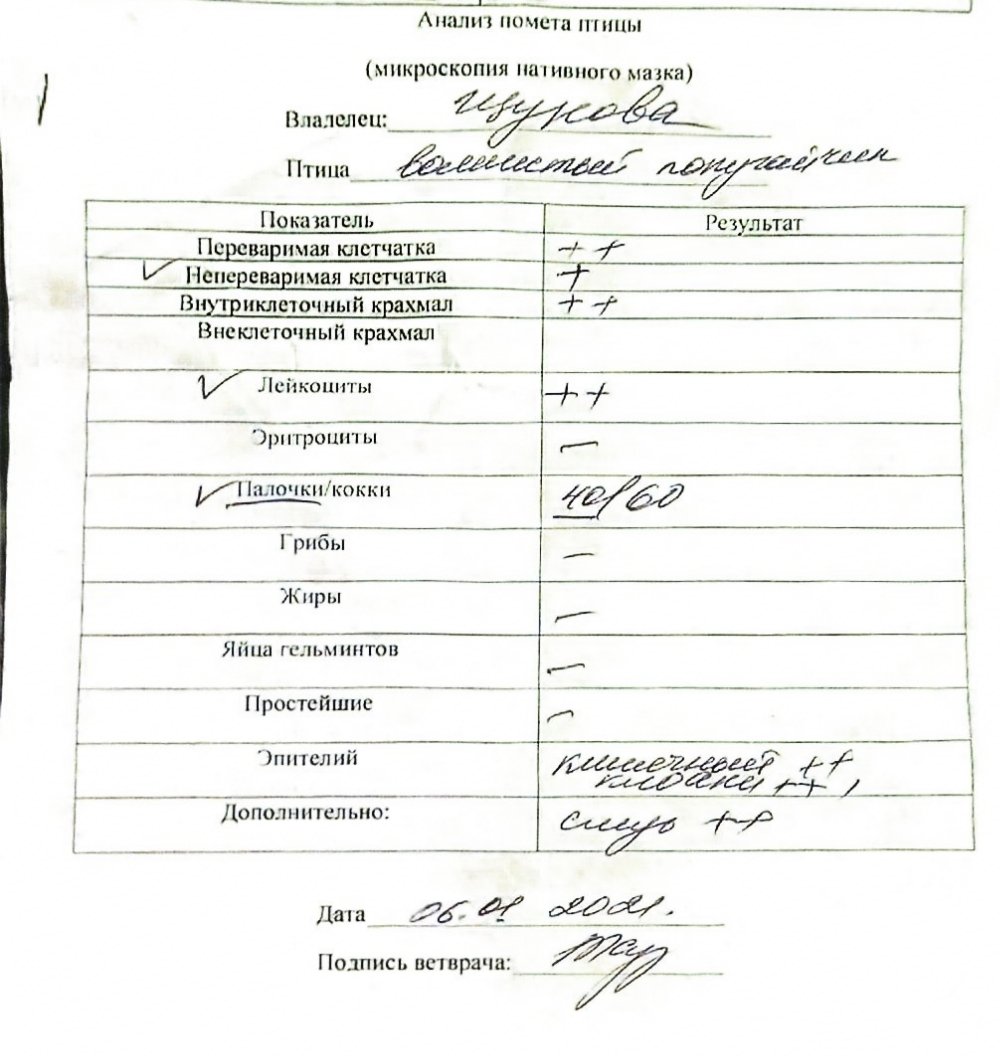 Анализ помета птицы
(микроскопия нативного мазка)
Владелец: Щукова
Птица волнистый попугайчик
Показатель Результат
Переваримая клетчатка ++
Непереваримая клетчатка +
Внутриклеточный крахмал ++
Внеклеточный крахмал
Лейкоциты ++
Эритроциты —
Палочки/кокки 40/60
Грибы —
Жиры —
Яйца гельминтов —
Простейшие —
Эпителий кишечный ++
++,
Дополнительно: слизь ++
Дата 06.01 2021.
Подпись ветврача: